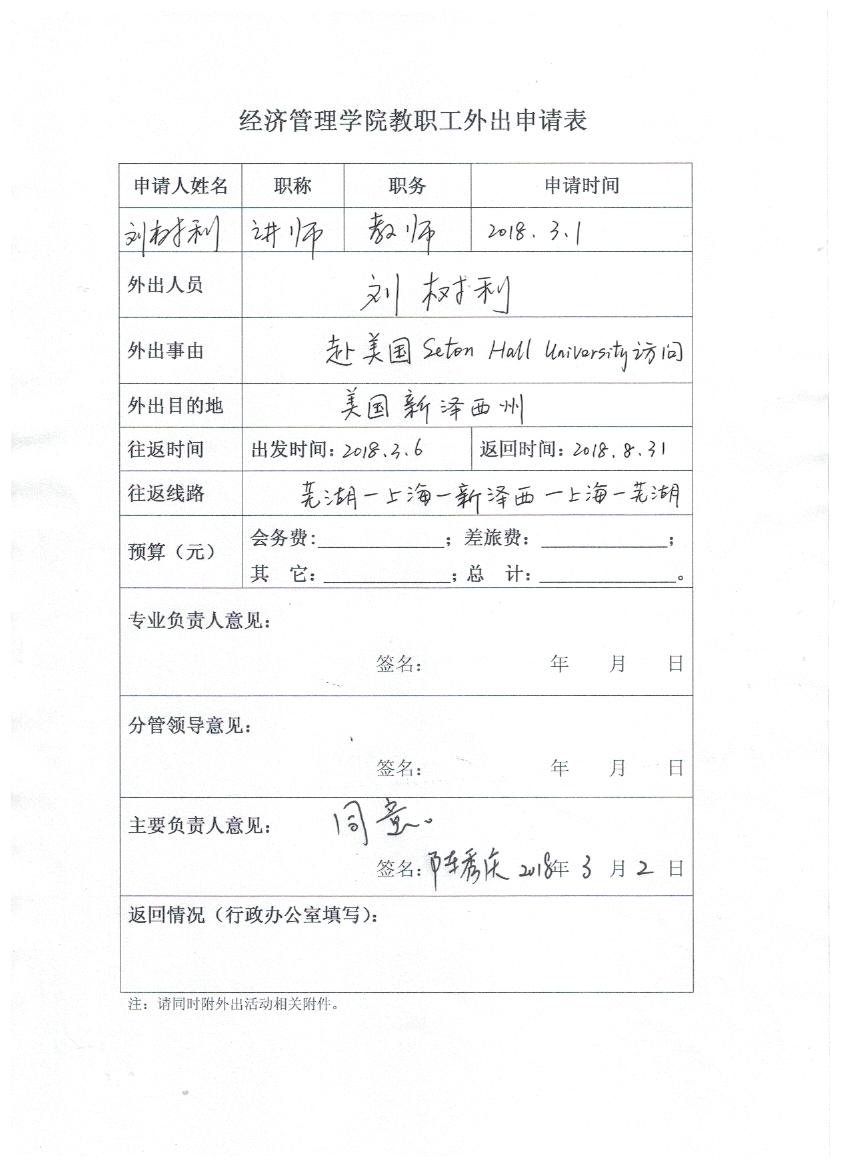 经济管理学院教职工外出申请表
申请人姓名 职称 职务 申请时间
刘树利 讲师 教师 2018.3.1
外出人员 刘树利
外出事由 赴美国 Seton Hall University 访问
外出目的地 美国新泽西州
往返时间 出发时间：2018.3.6 返回时间：2018.8.31
往返线路 芜湖－上海－新泽西－上海－芜湖
预算（元） 会务费：____________；差旅费：____________；
其 它：____________；总 计：_____________。
专业负责人意见：
签名： 年 月 日
分管领导意见：
签名： 年 月 日
主要负责人意见： 同意。
签名：陈秀庆 2018年 3 月 2 日
返回情况（行政办公室填写）：
注：请同时附外出活动相关附件。